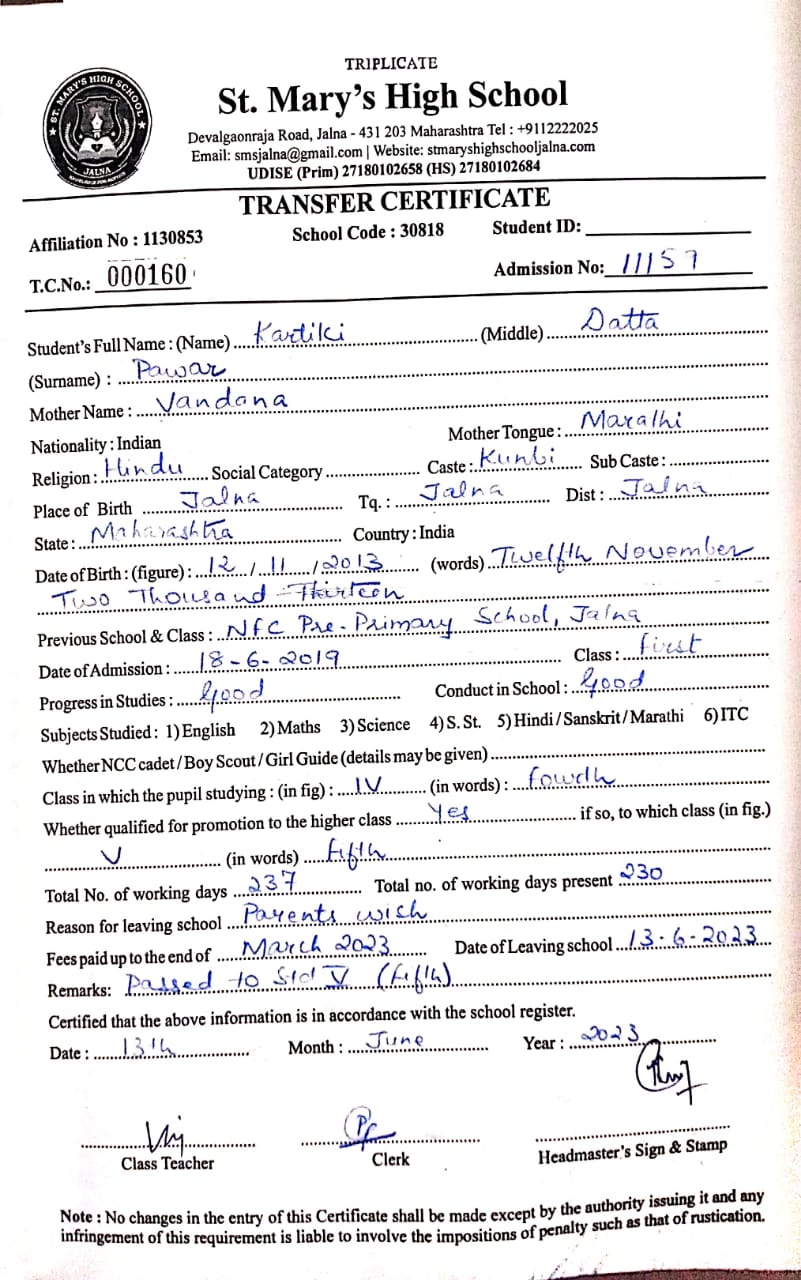 TRIPLICATE
ST. MARY'S HIGH SCHOOL
JALNA
St. Mary's High School
Devalgaonraja Road, Jalna - 431 203 Maharashtra Tel : +9112222025
Email: smsjalna@gmail.com | Website: stmaryshighschooljalna.com
UDISE (Prim) 27180102658 (HS) 27180102684
TRANSFER CERTIFICATE
Affiliation No : 1130853 School Code : 30818 Student ID:
T.C.No.: 000160 Admission No: 11157
Student's Full Name : (Name) Kartiki (Middle) Datta
(Surname) : Pawar
Mother Name : Vandana
Nationality : Indian Mother Tongue : Marathi
Religion : Hindu Social Category Caste : Kunbi Sub Caste :
Place of Birth Jalna Tq. : Jalna Dist : Jalna
State : Maharashtra Country : India
Date of Birth : (figure) : 12 / 11 / 2013 (words) Twelfth November
Two Thousand Thirteen
Previous School & Class : NFC Pre-Primary School, Jalna
Date of Admission : 18-6-2019 Class : first
Progress in Studies : Good Conduct in School : Good
Subjects Studied : 1) English 2) Maths 3) Science 4) S. St. 5) Hindi / Sanskrit / Marathi 6) ITC
Whether NCC cadet / Boy Scout / Girl Guide (details may be given)
Class in which the pupil studying : (in fig) : IV (in words) : fourth
Whether qualified for promotion to the higher class Yes if so, to which class (in fig.)
V (in words) fifth
Total No. of working days 237 Total no. of working days present 230
Reason for leaving school Parents wish
Fees paid up to the end of March 2023 Date of Leaving school 13-6-2023
Remarks: Passed to Std V (fifth)
Certified that the above information is in accordance with the school register.
Date : 13th Month : June Year : 2023
Class Teacher Clerk Headmaster's Sign & Stamp
Note : No changes in the entry of this Certificate shall be made except by the authority issuing it and any
infringement of this requirement is liable to involve the impositions of penalty such as that of rustication.